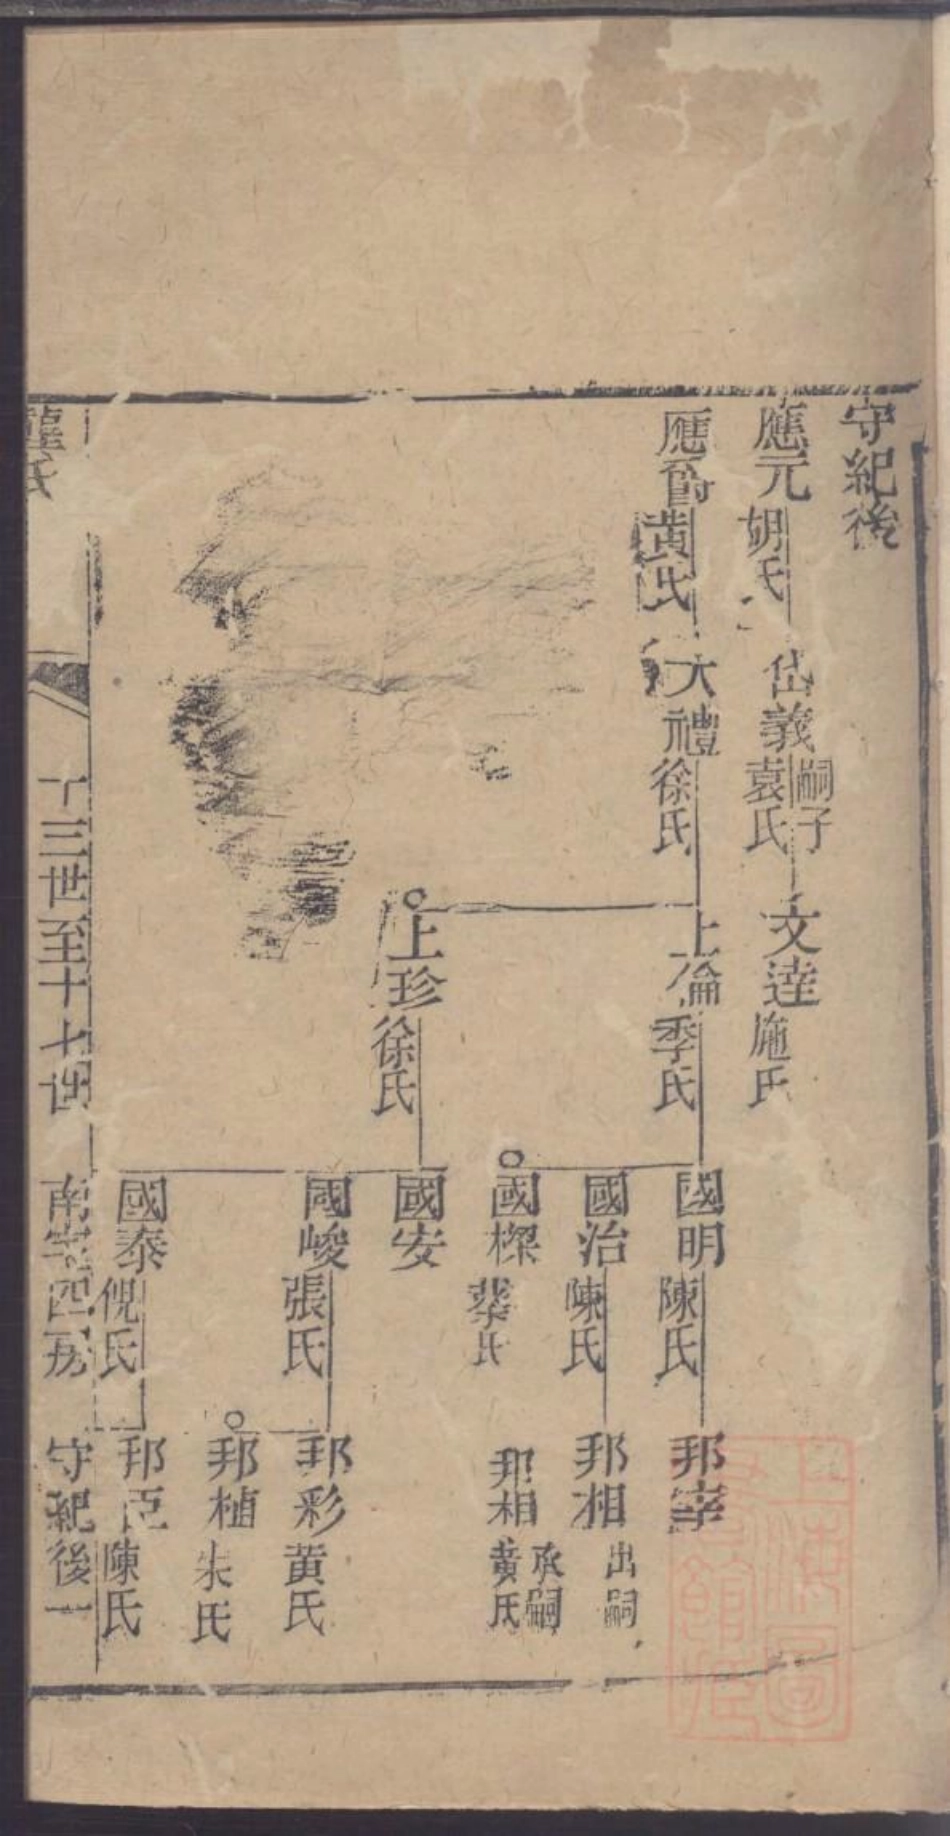 守紀後
應元 胡氏 岱義 嗣子 袁氏 文達 施氏
應爵 黃氏 大禮 徐氏 上倫 季氏 國明 陳氏 邦宰
國治 陳氏 邦相 出嗣
國樑 蔡氏 邦相 承嗣 黃氏
上珍 徐氏 國安
國峻 張氏 邦彩 黃氏
邦植 朱氏
國泰 倪氏 邦臣 陳氏
龔氏 十三世至十七世 南宅四房 守紀後一